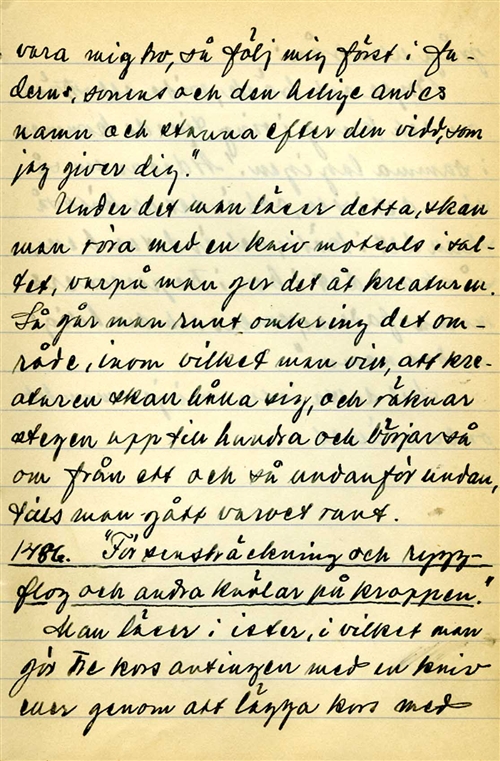 vara mig tro, så följ mig först i fa-
derns, sonens och den helige andes
namn och stanna efter den vidd, som
jag giver dig."
Under det man läser detta, skan
man röra med en kniv motsols i sal-
tet, varpå man ger det åt kreaturen.
Så går man runt omkring det om-
råde, inom vilket man vill, att kre-
aturen skall hålla sig, och räknar
stegen upp till hundra och börjar så
om från ett och så undanför undan,
tills man gått varvet runt.
1486. "För sensträckning och rygg-
flog och andra knölar på kroppen."
Man läser i ister, i vilket man
gör tre kors antingen med en kniv
eller genom att lägga kors med